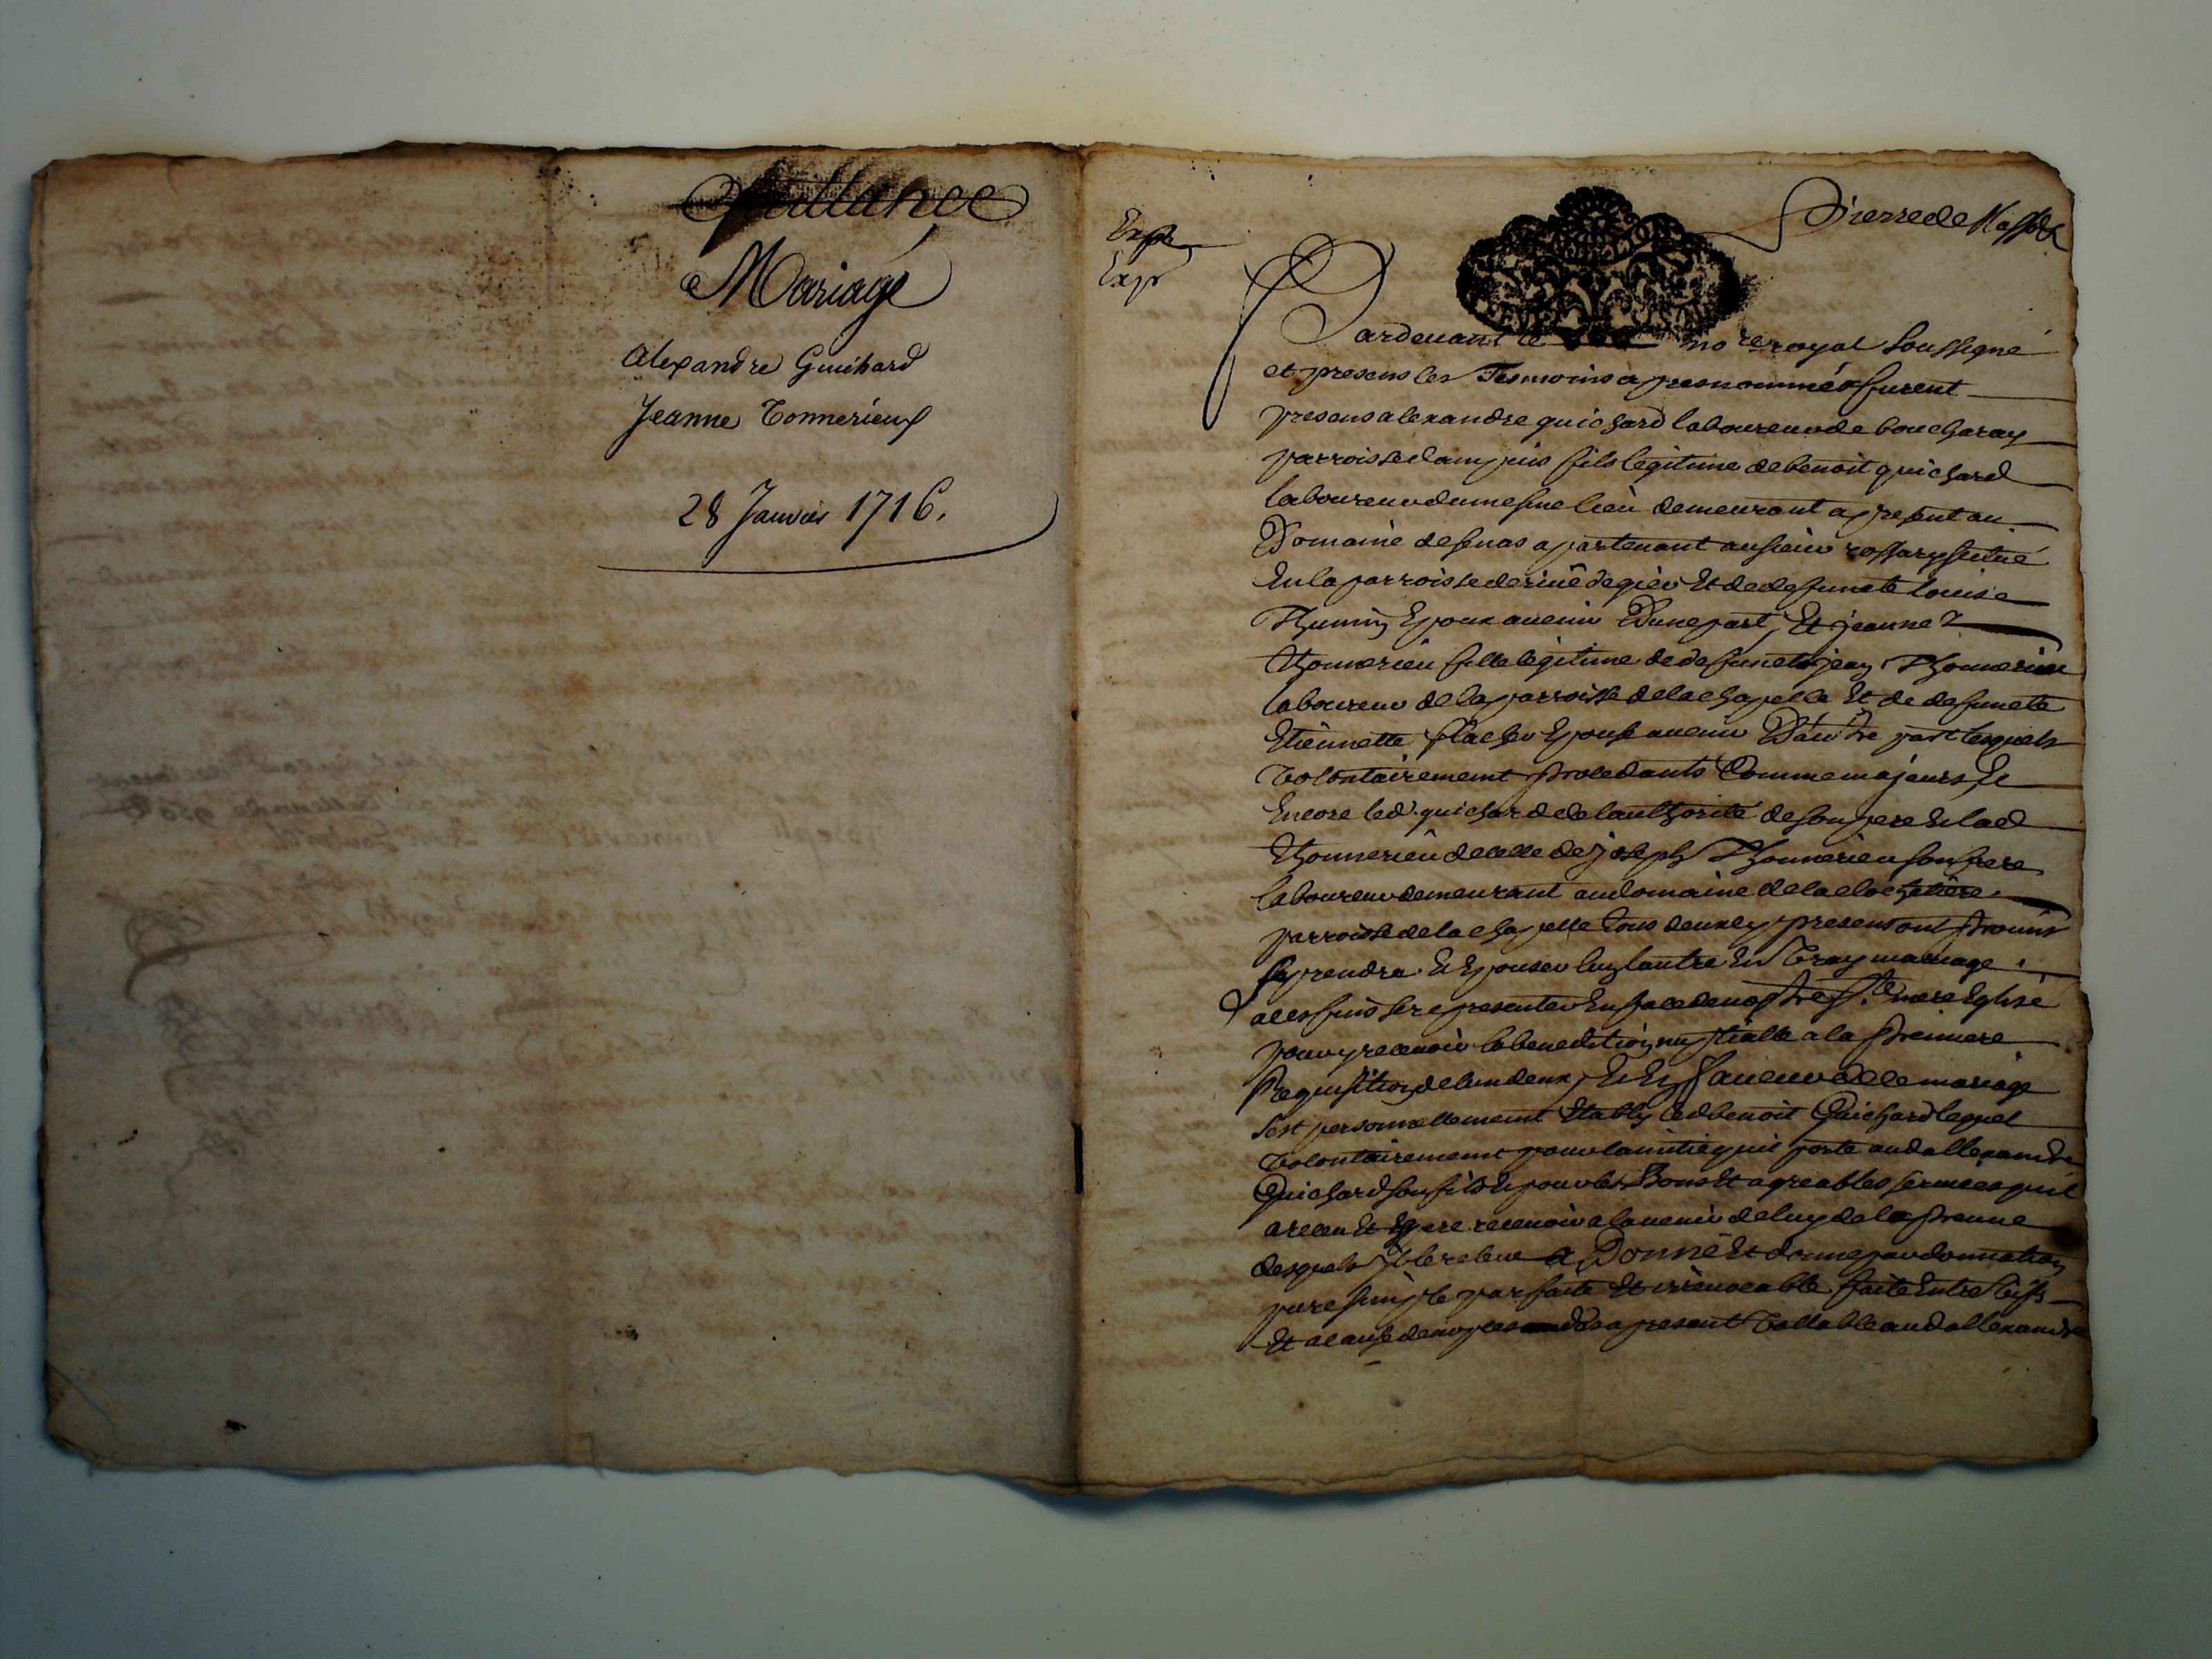 Quittance
Mariage
Alexandre Guichard
Jeanne Tonnerieux
28 Janvier 1716.
Expé
Exp
Pierre de
Pardevant le no.re royal soussigné
et presens les Tesmoins cy apres nommés furent
presens alexandre guichard laboureur de boucharay
parroisse dampuis fils legitime de benoit guichard
laboureur du mesme lieu demeurant a present au
Domaine de senas apartenant au sieur rossary situé
En la parroisse de rive de gier Et de defuncte Louise
Thumin Epoux avenir D'une part, Et jeanne
thonnerieu fille legitime de defunct jean Thonnerieu
laboureur de la parroisse de la chapelle Et de defuncte
Etiennette flacher Epouse avenir D'autre part lesquels
volontairement procedants Comme majeurs Et
Encore led. guichard de l'authorité de son pere Et lad
thonnerieu de celle de joseph Thonnerieu son frere
laboureur demeurant au domaine de la
parroisse de la chapelle tous deux cy presens ont promis
se prendre Et Epouser lun lautre En vray mariage
a ces fins se representer En face de nostre S.te mere Eglise
pour y recevoir la benediction nuptialle a la premiere
Requisition de lun deux, Et En faveur de ce mariage
s'est personnellement Etably led benoit Guichard lequel
volontairement pour lamitié quil porte aud allexandre
Guichard son fils Et pour les Bons Et agreables services quil
a receu Et Espere recevoir a lavenir de luy de la preuve
desquels Il le releve a Donné Et donne par donnation
pure simple parfaite Et irrevocable faite Entre vifs
Et a cause de nopces des a present vallable aud allexandre